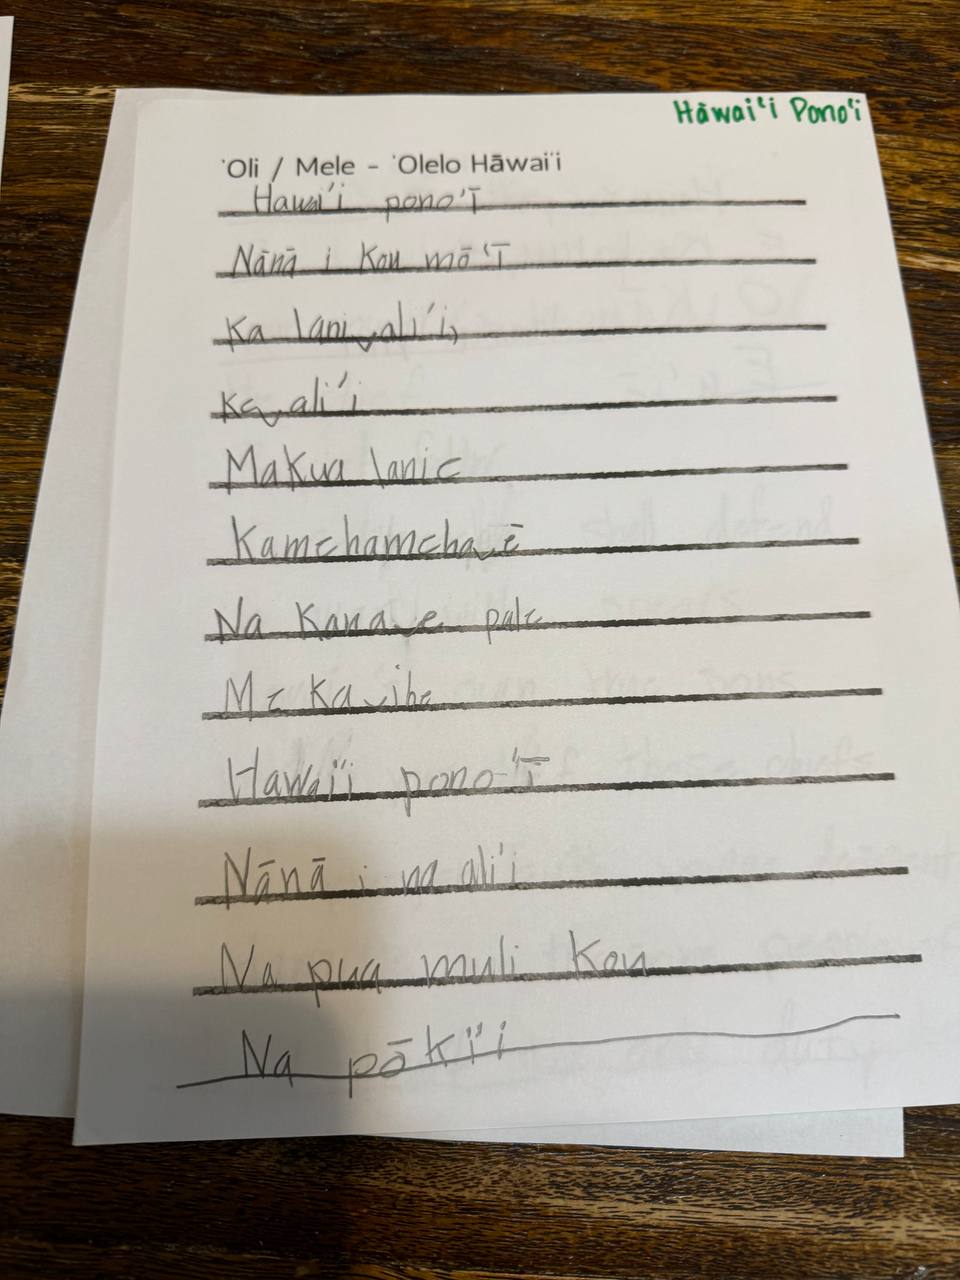 Hāwai'i Pono'i
'Oli / Mele - 'Olelo Hāwai'i
Hawai'i pono'ī
Nānā i Kou mō'ī
Ka lani ali'i,
Ka ali'i
Makua lanie
Kamehamehae
Na Kanae pale
Me Ka ihe
Hawai'i pono'ī
Nānā i na ali'i
Na pua muli Kou
Na pōki'i